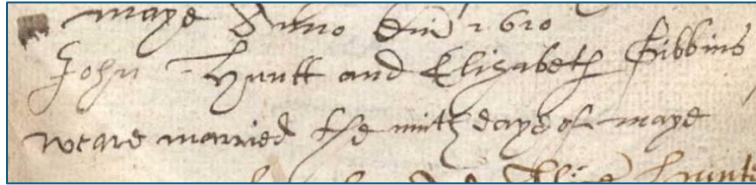 maye Anno dni 1610
John Huntt and Elizabeth Gibbins
weare married the ninth daye of maye